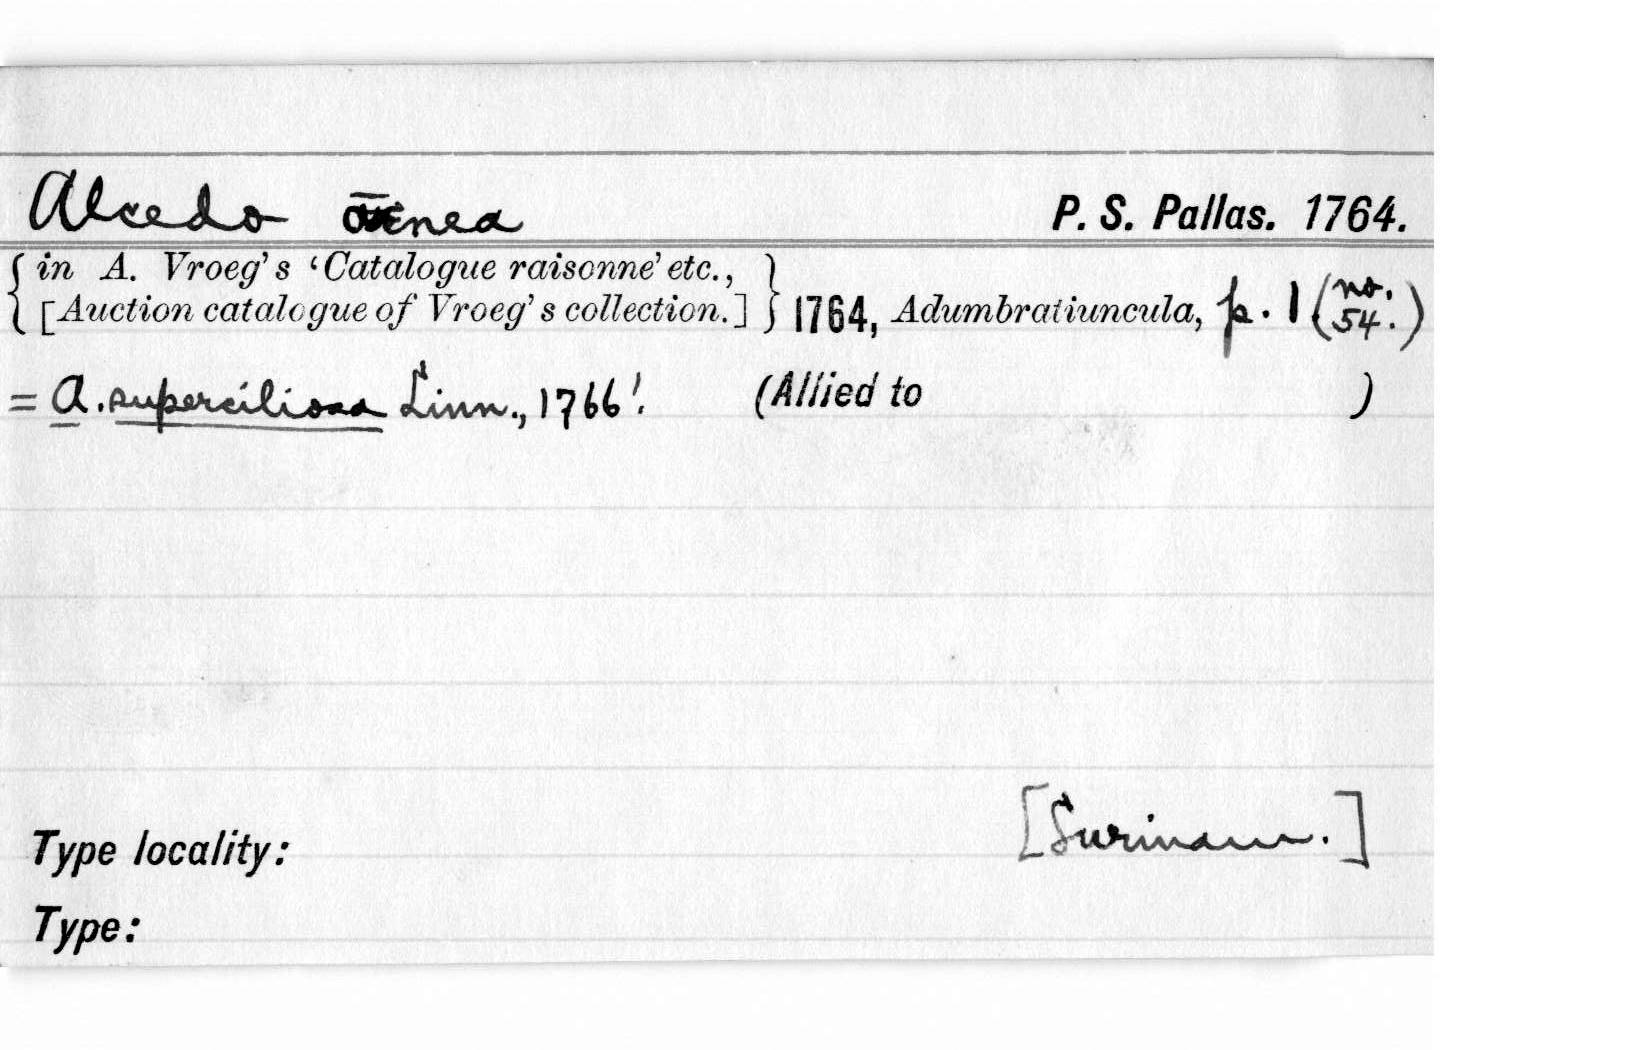 Alcedo aenea P. S. Pallas. 1764.
{ in A. Vroeg's ‘Catalogue raisonne’ etc., }
{ [Auction catalogue of Vroeg's collection.] } 1764, Adumbratiuncula, p. 1 (no. 54.)
= A. superciliosa Linn., 1766! (Allied to )
[Surinam.]
Type locality:
Type: